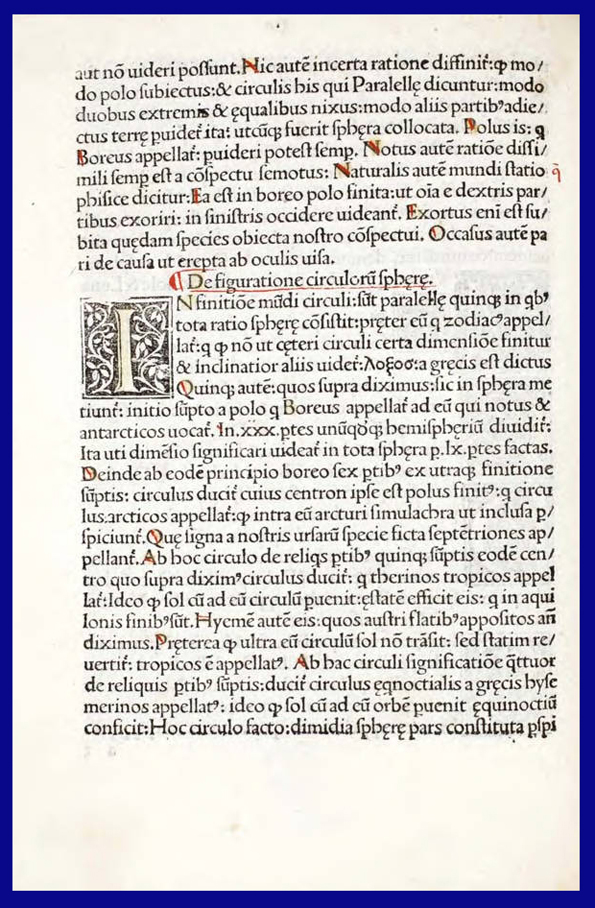 aut nō uideri poſſunt. Nic autē incerta ratione diffinit᷑: ꝙ mo/
do polo ſubiectus: & circulis his qui Paralellę dicuntur: modo
duobus extremis & ęqualibus nixus: modo aliis partibꝰ adie/
ctus terrę puidet᷑ ita: utcūqꝫ fuerit ſphęra collocata. Polus is: q
Boreus appellat᷑: puideri poteſt ſemp. Notus autē ratiōe diſſi/
mili ſemp eſt a cōſpectu ſemotus: Naturalis autē mundi ſtatio q̄
phiſice dicitur: Ea eſt in boreo polo finita: ut oīa e dextris par/
tibus exoriri: in ſiniſtris occidere uideant᷑. Exortus enī eſt ſu/
bita quędam ſpecies obiecta noſtro cōſpectui. Occaſus autē pa
ri de cauſa ut erepta ab oculis uiſa.
¶ De figuratione circulorū ſphęrę.
IN finitiōe mūdi circuli: ſūt paralellę quinqꝫ in qbꝰ
tota ratio ſphęrę cōſiſtit: pręter eū q zodiacꝰ appel/
lat᷑: q ꝙ nō ut cęteri circuli certa dimenſiōe finitur
& inclinatior aliis uidet᷑: λοξοσ: a gręcis eſt dictus
Quinqꝫ autē: quos ſupra diximus: ſic in ſphęra me
tiunt᷑: initio ſūpto a polo q Boreus appellat᷑ ad eū qui notus &
antarcticos uocat᷑. In .xxx. ptes unūqdqꝫ hemiſpheriū diuidit᷑:
Ita uti dimēſio ſignificari uideat᷑ in tota ſphęra p. lx. ptes factas.
Deinde ab eodē principio boreo ſex ptibꝰ ex utraqꝫ finitione
ſūptis: circulus ducit᷑ cuius centron ipſe eſt polus finitꝰ: q circu
lus. arcticos appellat᷑: ꝙ intra eū arcturi ſimulachra ut incluſa p/
ſpiciunt᷑. Quę ſigna a noſtris urſarū ſpecie ficta ſeptētriones ap/
pellant᷑. Ab hoc circulo de reliqs ptibꝰ quinqꝫ ſūptis eodē cen/
tro quo ſupra diximꝰ circulus ducit᷑: q therinos tropicos appel
lat᷑: Ideo ꝙ ſol cū ad eū circulū puenit: ęſtatē efficit eis: q in aqui
lonis finibꝰ ſūt. Hyemē autē eis: quos auſtri flatibꝰ appoſitos añ
diximus. Pręterea ꝙ ultra eū circulū ſol nō trāſit: ſed ſtatim re/
uertit᷑: tropicos ē appellatꝰ. Ab hac circuli ſignificatiōe q̄ttuor
de reliquis ptibꝰ ſūptis: ducit᷑ circulus ęqnoctialis a gręcis hyſe
merinos appellatꝰ: ideo ꝙ ſol cū ad eū orbē puenit ęquinoctiū
conficit: Hoc circulo facto: dimidia ſphęrę pars conſtituta pſpi